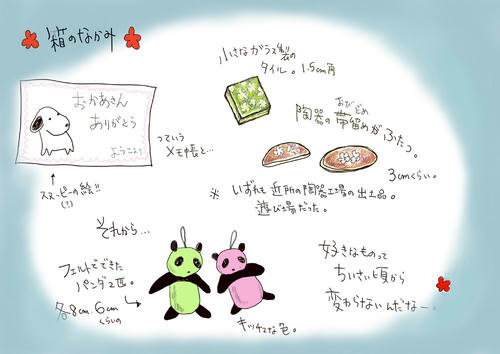 箱のなかみ
小さなガラス製の
タイル。1.5cm角
おかあさん
ありがとう
ようこより
っていう
メモ帳と…
おびどめ
陶器の帯留めがふたつ。
3cmくらい。
スヌーピーの絵!!
(?)
※ いずれも近所の陶器工場の出土品。
遊び場だった。
それから…
フェルトでできた
パンダ2匹。
各8cm、6cm
くらいの
キッチュな色。
好きなものって
ちいさい頃から
変わらないんだなー。